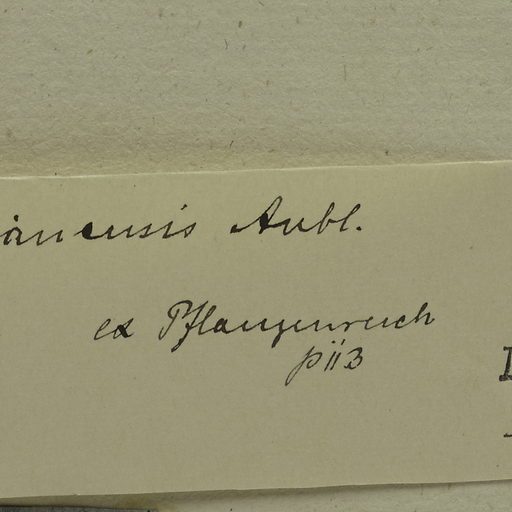 anensis Aubl.
ex Pflanzenreich
p 113